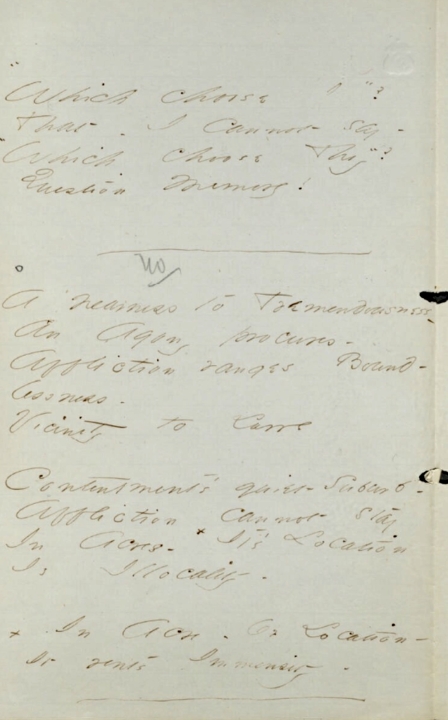 "Which choose I"?
That - I cannot say -
"Which choose They"?
Question Memory!
no
A nearness to Tremendousness
An Agony procures -
Affliction ranges Bound-
lessness -
Vicinity to Laws
Contentment's quiet Suburb -
Affliction cannot stay
In Acres - + It's Location
Is Illocality -
+ In Acre - Or Location -
It rents Immensity -